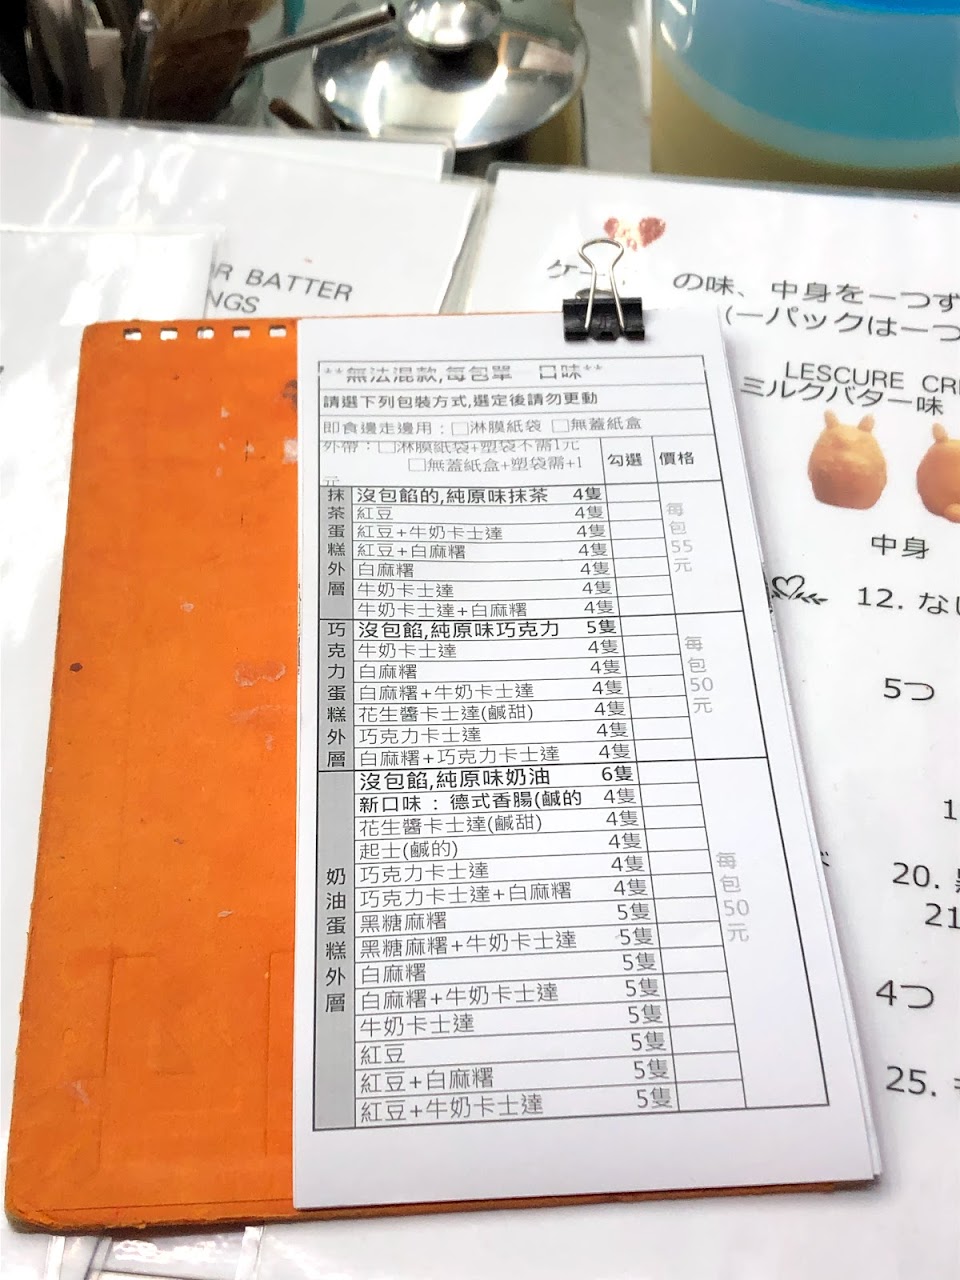 R BATTER
NGS
の味、中身を一つず
(一パックは一つ
LESCURE CR
ミルクバター味
中身
12. な
5つ
20.
21
4つ
25.
**無法混款,每包單 口味**
請選下列包裝方式,選定後請勿更動
即食邊走邊用:□淋膜紙袋 □無蓋紙盒
外帶:□淋膜紙袋+塑袋不需1元
□無蓋紙盒+塑袋需+1
元
勾選 價格
抹茶蛋糕外層
沒包餡的,純原味抹茶 4隻
紅豆 4隻
紅豆+牛奶卡士達 4隻
紅豆+白麻糬 4隻
白麻糬 4隻
牛奶卡士達 4隻
牛奶卡士達+白麻糬 4隻
每包55元
巧克力蛋糕外層
沒包餡,純原味巧克力 5隻
牛奶卡士達 4隻
白麻糬 4隻
白麻糬+牛奶卡士達 4隻
花生醬卡士達(鹹甜) 4隻
巧克力卡士達 4隻
白麻糬+巧克力卡士達 4隻
每包50元
奶油蛋糕外層
沒包餡,純原味奶油 6隻
新口味 : 德式香腸(鹹的 4隻
花生醬卡士達(鹹甜) 4隻
起士(鹹的) 4隻
巧克力卡士達 4隻
巧克力卡士達+白麻糬 4隻
黑糖麻糬 5隻
黑糖麻糬+牛奶卡士達 5隻
白麻糬 5隻
白麻糬+牛奶卡士達 5隻
牛奶卡士達 5隻
紅豆 5隻
紅豆+白麻糬 5隻
紅豆+牛奶卡士達 5隻
每包50元